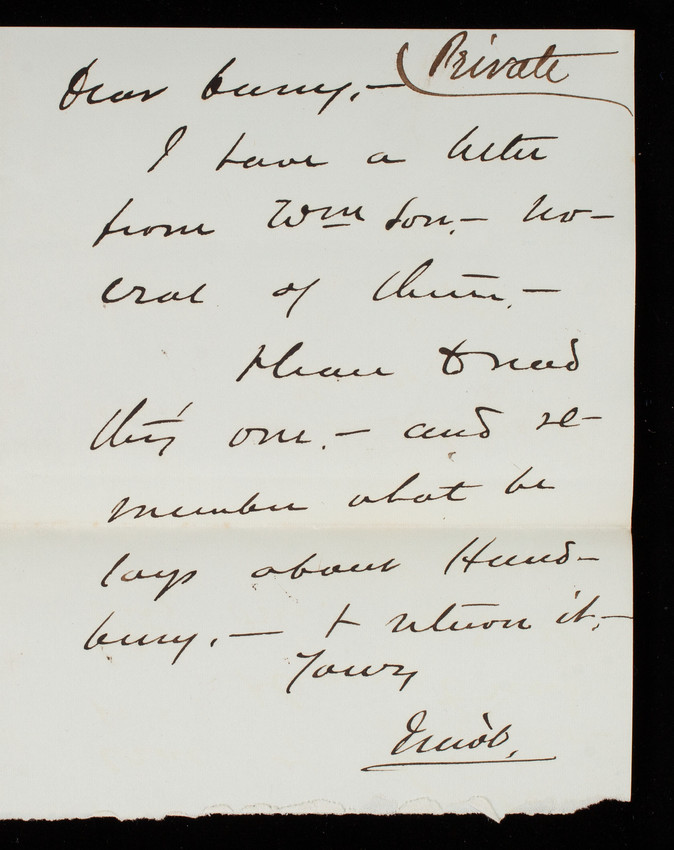 Private
Dear Casey,—
I have a letter
from Wm Son,— sev–
eral of them,—
Please to read
this one.— and re–
member what he
says about Hand–
bury,— & return it,—
Yours,